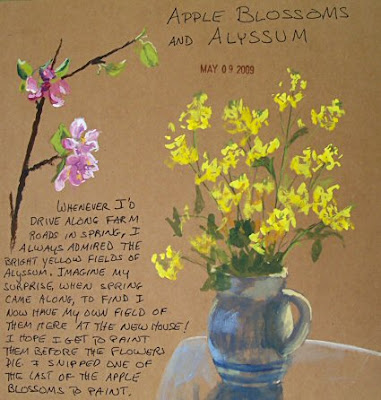 APPLE BLOSSOMS
AND ALYSSUM
MAY 09 2009
WHENEVER I'D
DRIVE ALONG FARM
ROADS IN SPRING, I
ALWAYS ADMIRED THE
BRIGHT YELLOW FIELDS OF
ALYSSUM. IMAGINE MY
SURPRISE, WHEN SPRING
CAME ALONG, TO FIND I
NOW HAVE MY OWN FIELD OF
THEM HERE AT THE NEW HOUSE!
I HOPE I GET TO PAINT
THEM BEFORE THE FLOWERS
DIE. I SNIPPED ONE OF
THE LAST OF THE APPLE
BLOSSOMS TO PAINT.